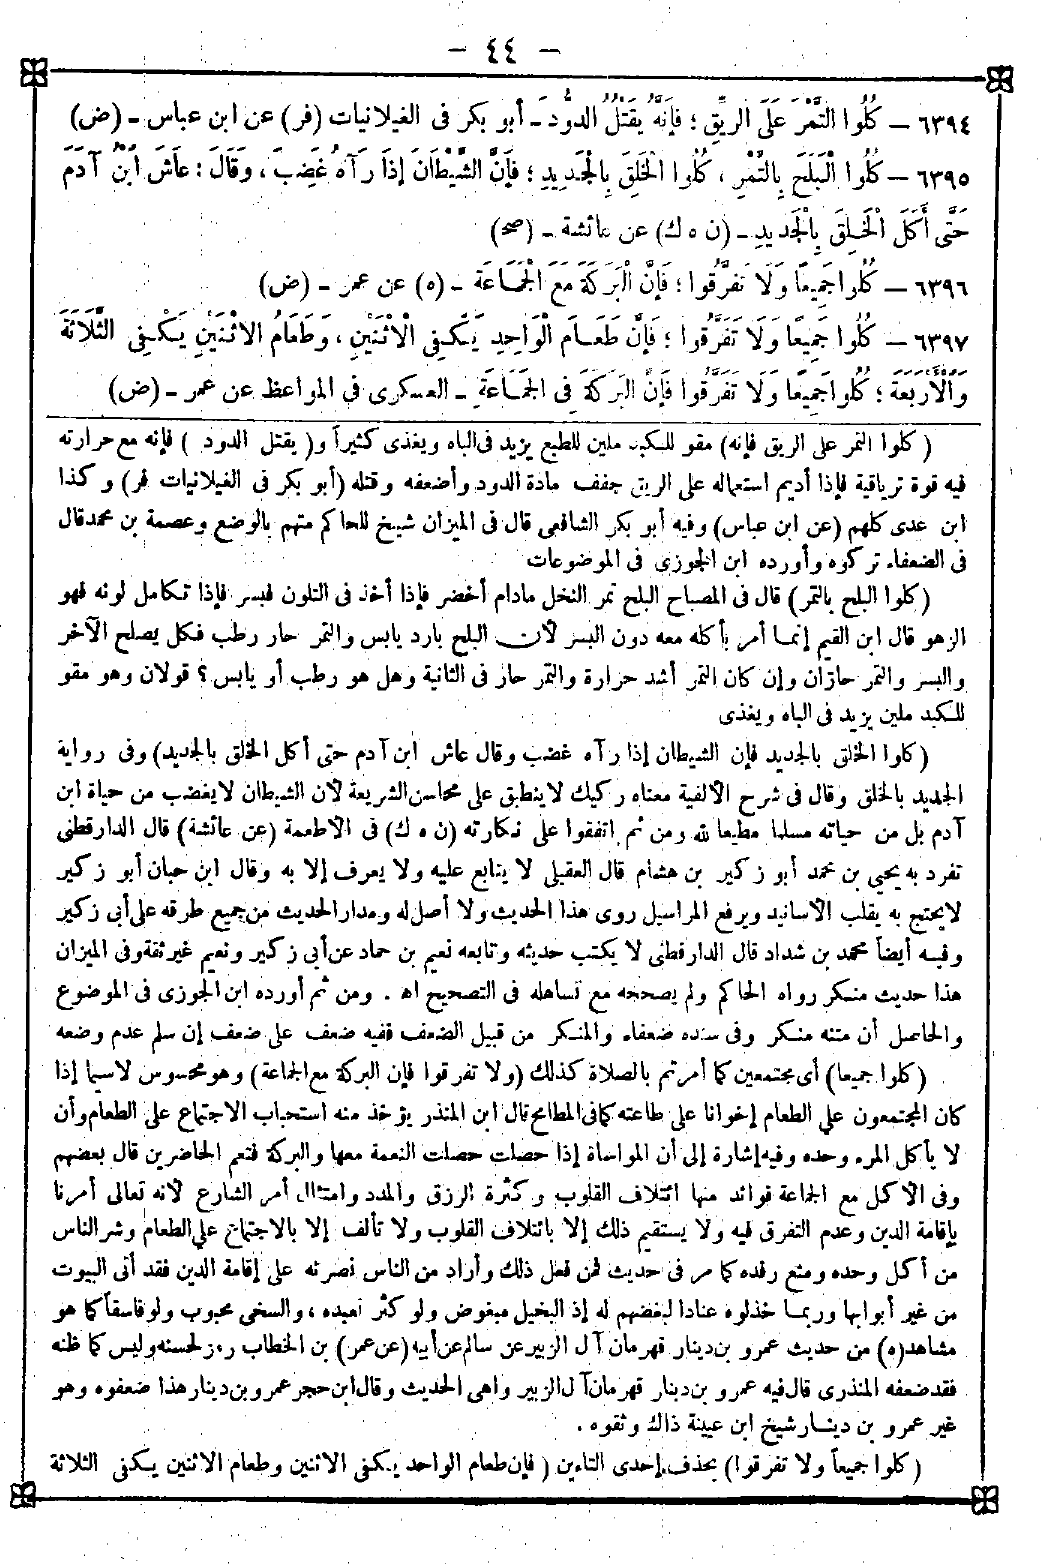 - ٤٤ -
٦٣٩٤ - كُلُوا التَّمْرَ عَلَى الرِيقِ ؛ فَإِنَّهُ يَقْتُلُ الدُّودَ - أبو بكر فى الغيلانيات (فر) عن ابن عباس - (ض)
٦٣٩٥ - كُلُوا الْبَلَحَ بِالتَّمْرِ ، كُلُوا الْخَلِقَ بِالْجَدِيدِ ؛ فَإِنَّ الشَّيْطَانَ إِذَا رَآهُ غَضِبَ ، وَقَالَ : عَاشَ ابْنُ آدَمَ
حَتَّى أَكَلَ الْخَلِقَ بِالْجَدِيدِ - (ن ه ك) عن عائشة - (صح)
٦٣٩٦ - كُلُوا جَمِيعًا وَلَا تَفَرَّقُوا ؛ فَإِنَّ الْبَرَكَةَ مَعَ الْجَمَاعَةِ - (ه) عن عمر - (ض)
٦٣٩٧ - كُلُوا جَمِيعًا وَلَا تَفَرَّقُوا ؛ فَإِنَّ طَعَامَ الْوَاحِدِ يَكْفِى الْاثْنَيْنِ ، وَطَعَامُ الاثْنَيْنِ يَكْفِى الثَّلَاثَةَ
وَالْأَرْبَعَةَ ؛ كُلُوا جَمِيعًا وَلَا تَفَرَّقُوا فَإِنَّ الْبَرَكَةَ فِى الْجَمَاعَةِ - العسكرى فى المواعظ عن عمر - (ض)
( كلوا التمر على الريق فإنه) مقو للكبد ملين للطبع يزيد فى الباه ويغذى كثيراً و( يقتل الدود ) فإنه مع حرارته
فيه قوة ترياقية فإذا أديم استعماله على الريق جفف مادة الدود وأضعفه وقتله (أبو بكر فى الغيلانيات فر) وكذا
ابن عدى كلهم (عن ابن عباس) وفيه أبو بكر الشافعى قال فى الميزان شيخ للحاكم متهم بالوضع وعصمة بن محمد قال
فى الضعفاء تركوه وأورده ابن الجوزى فى الموضوعات
(كلوا البلح بالتمر) قال فى المصباح البلح تمر النخل مادام أخضر فإذا أخذ فى التلون فبسر فإذا تكامل لونه فهو
الزهو قال ابن القيم إنما أمر بأكله معه دون البسر لأن البلح بارد يابس والتمر حار رطب فكل يصلح الآخر
والبسر والتمر حارّان وإن كان التمر أشد حرارة والتمر حار فى الثانية وهل هو رطب أو يابس ؟ قولان وهو مقو
للكبد ملين يزيد فى الباه ويغذى
(كلوا الخلق بالجديد فإن الشيطان إذا رآه غضب وقال عاش ابن آدم حتى أكل الخلق بالجديد) وفى رواية
الجديد بالخلق وقال فى شرح الألفية معناه ركيك لا ينطبق على محاسن الشريعة لأن الشيطان لا يغضب من حياة ابن
آدم بل من حياته مسلما مطيعا لله ومن ثم اتفقوا على نكارته (ن ه ك) فى الأطعمة (عن عائشة) قال الدارقطنى
تفرد به يحيى بن محمد أبو زكير بن هشام قال العقيلى لا يتابع عليه ولا يعرف إلا به وقال ابن حبان أبو زكير
لا يحتج به يقلب الأسانيد ويرفع المراسيل روى هذا الحديث ولا أصل له ومدار الحديث من جميع طرقه على أبى زكير
وفيه أيضاً محمد بن شداد قال الدارقطنى لا يكتب حديثه وتابعه نعيم بن حماد عن أبى زكير ونعيم غير ثقة وفى الميزان
هذا حديث منكر رواه الحاكم ولم يصححه مع تساهله فى التصحيح اه . ومن ثم أورده ابن الجوزى فى الموضوع
والحاصل أن متنه منكر وفى سنده ضعفاء والمنكر من قبيل الضعف ففيه ضعف على ضعف إن سلم عدم وضعه
(كلوا جميعا) أى مجتمعين كما أمرتم بالصلاة كذلك (ولا تفرقوا فإن البركة مع الجماعة) وهو محسوس لاسيما إذا
كان المجتمعون على الطعام إخوانا على طاعته كما فى المطامح قال ابن المنذر يؤخذ منه استحباب الاجتماع على الطعام وأن
لا يأكل المرء وحده وفيه إشارة إلى أن المواساة إذا حصلت حصلت النعمة معها والبركة فتعم الحاضرين قال بعضهم
وفى الأكل مع الجماعة فوائد منها ائتلاف القلوب وكثرة الرزق والمدد وامتثال أمر الشارع لأنه تعالى أمرنا
بإقامة الدين وعدم التفرق فيه ولا يستقيم ذلك إلا بائتلاف القلوب ولا تألف إلا بالاجتماع على الطعام وشر الناس
من أكل وحده ومنع رفده كما مر فى حديث فمن فعل ذلك وأراد من الناس نصرته على إقامة الدين فقد أتى البيوت
من غير أبوابها وربما خذلوه عنادا لبغضهم له إذ البخيل مبغوض ولو كثر تعبده ، والسخى محبوب ولو فاسقاً كما هو
مشاهد (ه) من حديث عمرو بن دينار قهرمان آل الزبير عن سالم عن أبيه (عن عمر) بن الخطاب رمز لحسنه وليس كما ظنه
فقد ضعفه المنذرى قال فيه عمرو بن دينار قهرمان آل الزبير واهى الحديث وقال ابن حجر عمرو بن دينار هذا ضعفوه وهو
غير عمرو بن دينار شيخ ابن عيينة ذاك وثقوه .
(كلوا جميعاً ولا تفرقوا) بحذف إحدى التاءين ( فإن طعام الواحد يكفى الاثنين وطعام الاثنين يكفى الثلاثة